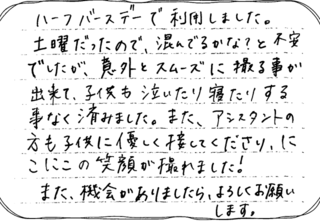 ハーフバースデーで利用しました。
土曜だったので、混んでるかな?と不安
でしたが、意外とスムーズに撮る事が
出来て、子供も泣いたり寝たりする
事なく済みました。また、アシスタントの
方も子供に優しく接してくださり、に
こにこの笑顔が撮れました!
また、機会がありましたら、よろしくお願い
します。